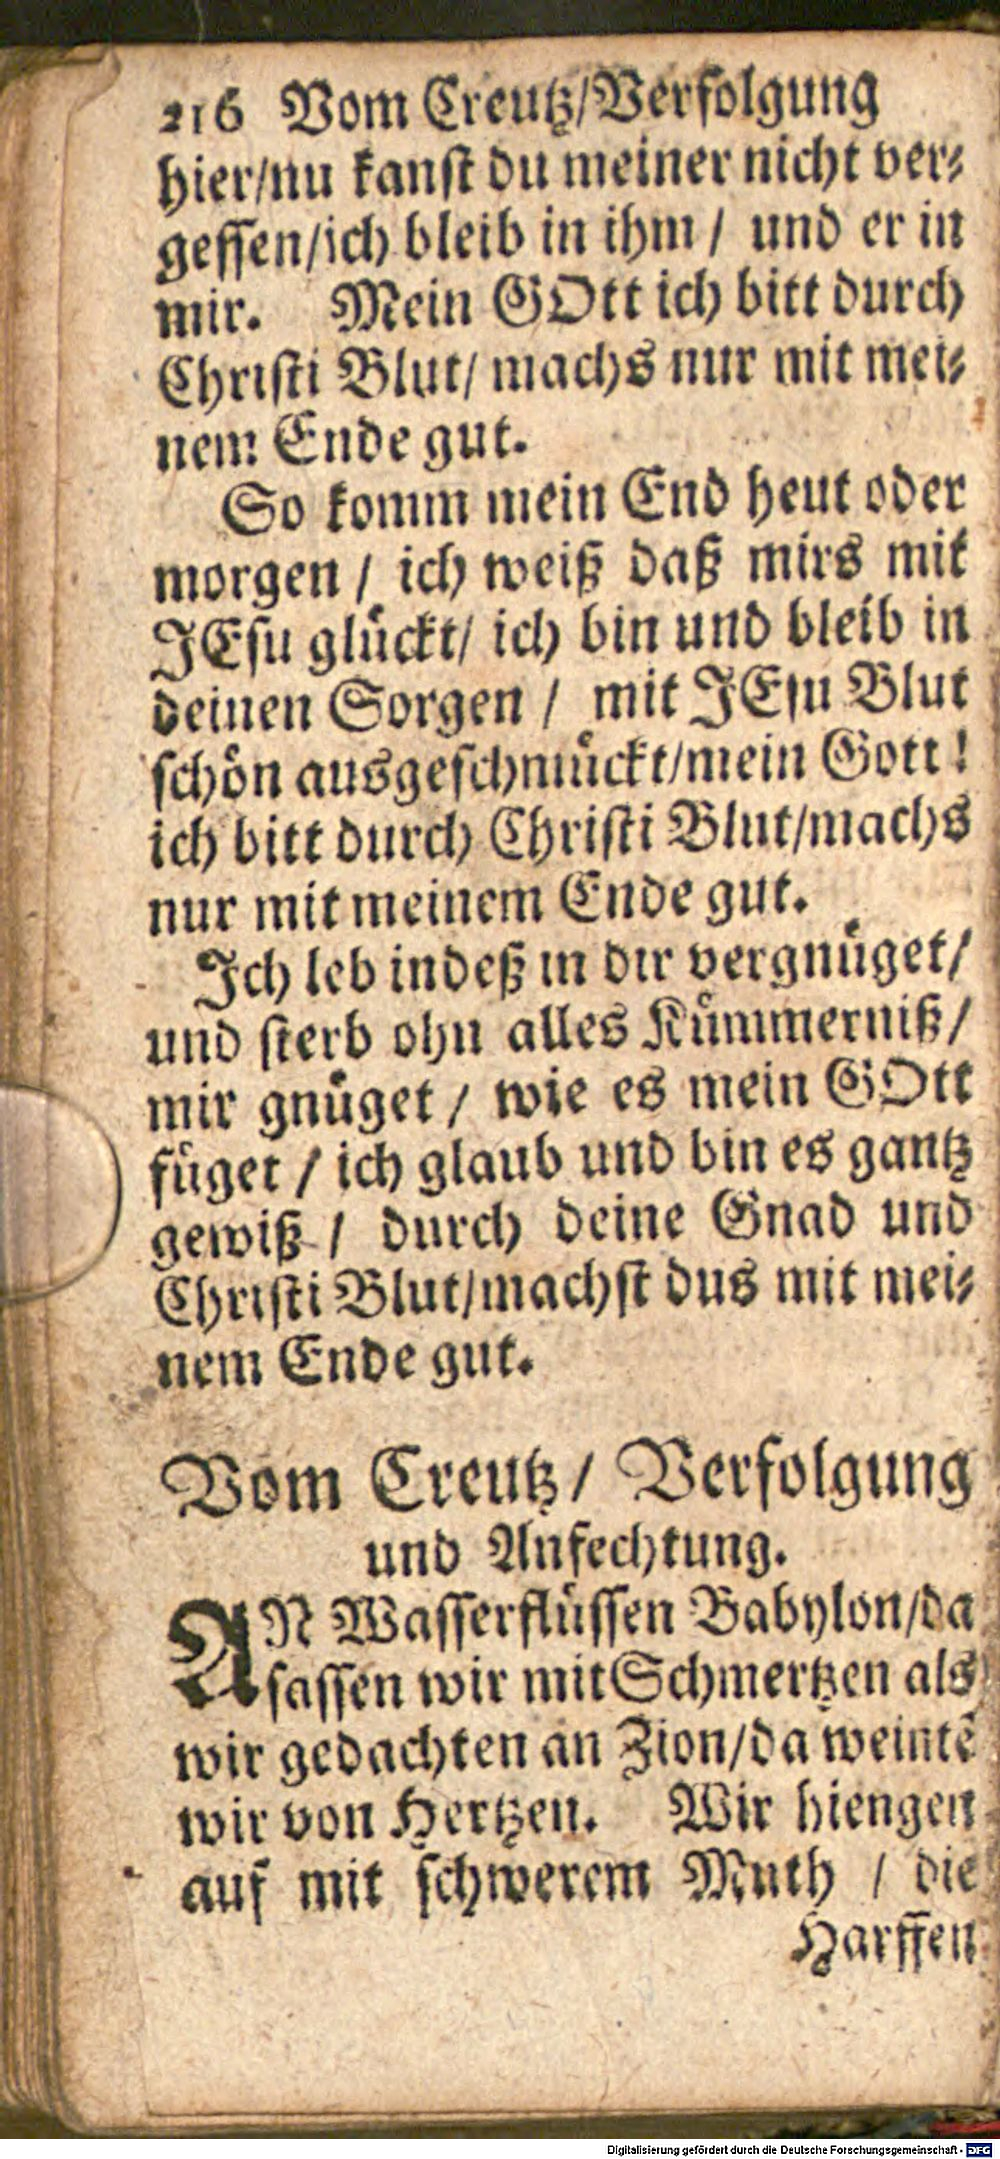 216 Vom Creutz/Verfolgung
hier/nu kanſt du meiner nicht ver⸗
geſſen/ich bleib in ihm / und er in
mir. Mein GOtt ich bitt durch
Chriſti Blut/ machs nur mit mei⸗
nem Ende gut.
So komm mein End heut oder
morgen / ich weiß daß mirs mit
JEſu gluͤckt/ ich bin und bleib in
deinen Sorgen / mit JEſu Blut
ſchoͤn ausgeſchmuͤckt/mein Gott!
ich bitt durch Chriſti Blut/machs
nur mit meinem Ende gut.
Ich leb indeß in dir vergnuͤget/
und ſterb ohn alles Kuͤmmerniß/
mir gnuͤget / wie es mein GOtt
fuͤget / ich glaub und bin es gantz
gewiß / durch deine Gnad und
Chriſti Blut/machſt dus mit mei⸗
nem Ende gut.
Vom Creutz/ Verfolgung
und Anfechtung.
AN Waſſerfluͤſſen Babylon/da
ſaſſen wir mit Schmertzen als
wir gedachten an Zion/da weintẽ
wir von Hertzen. Wir hiengen
auf mit ſchwerem Muth / die
Harffen
Digitalisierung gefördert durch die Deutsche Forschungsgemeinschaft - DFG